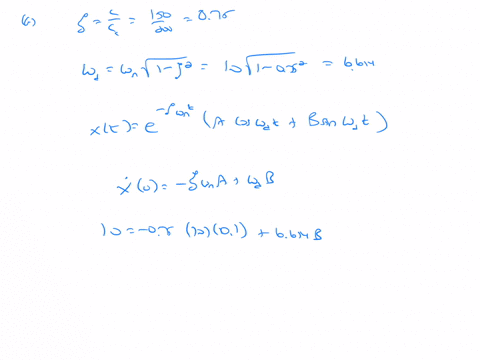 (c) ζ = c/c_c = 150/200 = 0.75
ω_d = ω_n √(1-ζ²) = 10 √(1-0.75²) = 6.614
x(t) = e^(-ζω_n t) (A cos ω_d t + B sin ω_d t)
ẋ(0) = -ζ ω_n A + ω_d B
10 = -0.75 (10)(0.1) + 6.614 B